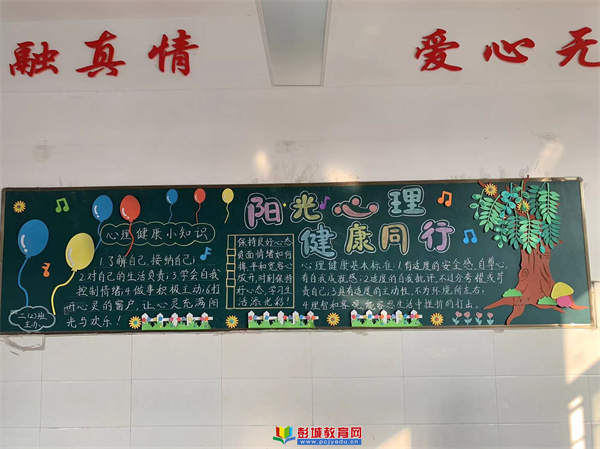 融真情
爱心无
阳光心理
健康同行
心理健康小知识
1.了解自己,接纳自己;
2.对自己的生活负责;3.学会自我
控制情绪;4.做事积极主动;5.打
开心灵的窗户,让心灵充满阳
光与欢乐!
二(2)班
主办
保持良好心态
负面情绪如何
排,平和宽容心
放开,时刻保持
好心态,学习生
活添光彩!
心理健康基本标准:1.有适度的安全感,自尊心,
有自我成就感;2.适度的自我批评,不过分夸耀
自己;3.具有适度的主动性,不为环境所左右;
理智和客观,能容忍生活中挫折的打击。
彭城教育网
www.pcjyedu.cn